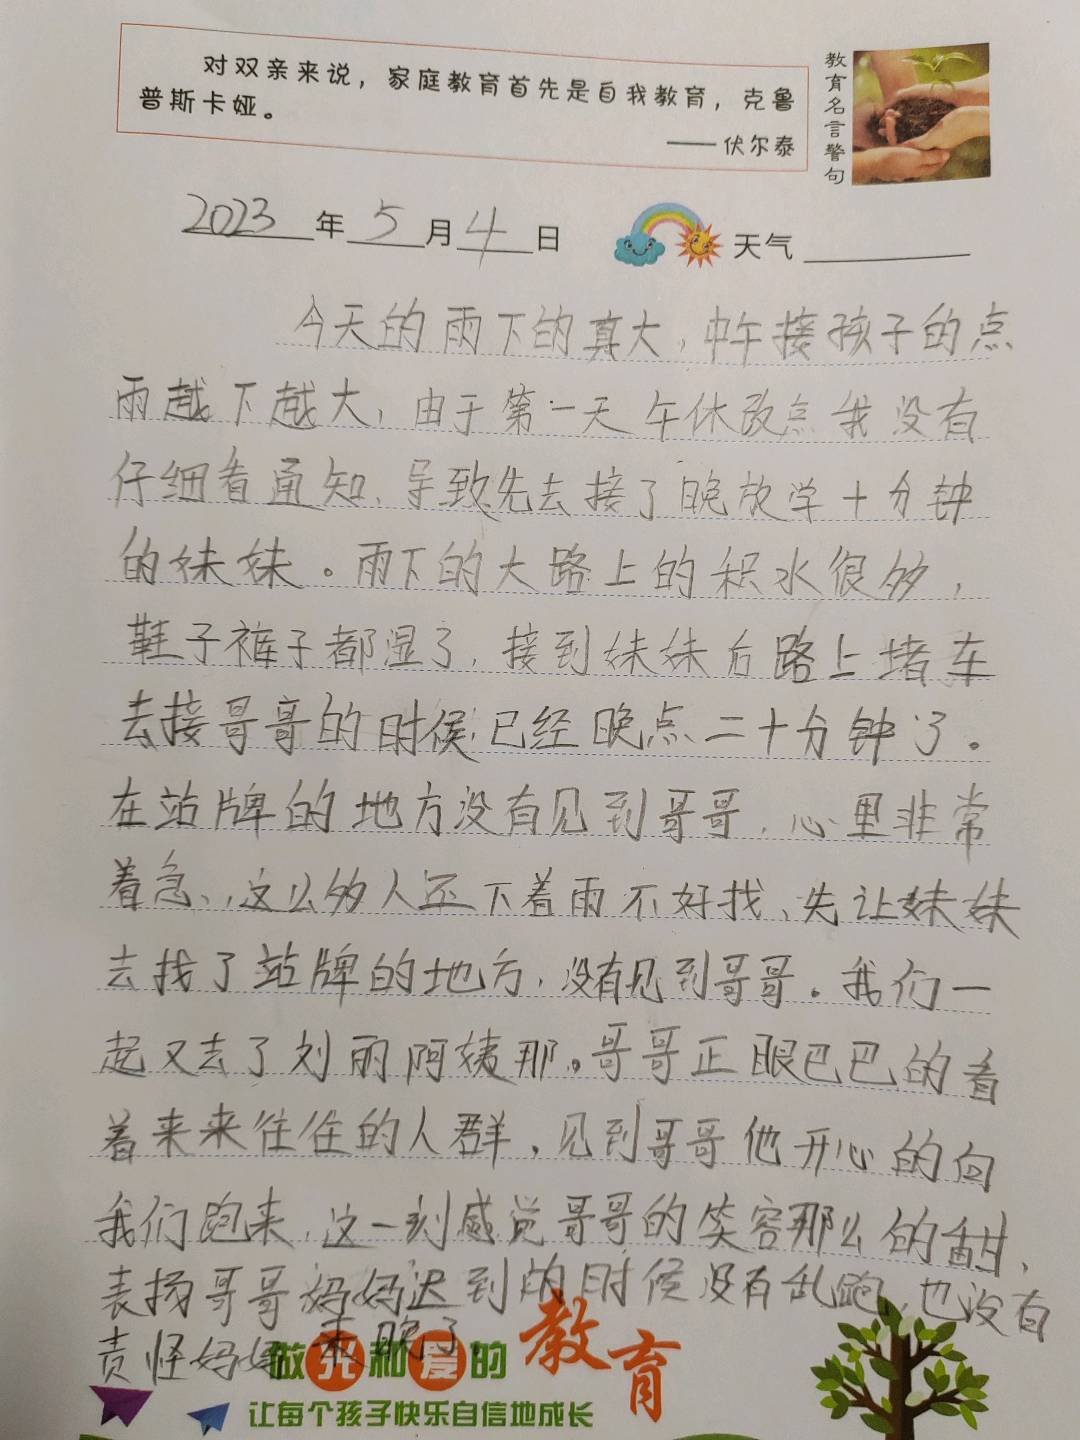 对双亲来说，家庭教育首先是自我教育，克鲁
普斯卡娅。
——伏尔泰
教育名言警句
2023年5月4日 天气
今天的雨下的真大，中午接孩子的点
雨越下越大，由于第一天午休改点我没有
仔细看通知，导致先去接了晚放学十分钟
的妹妹。雨下的大路上的积水很多，
鞋子裤子都湿了，接到妹妹后路上堵车
去接哥哥的时候已经晚点二十分钟了。
在站牌的地方没有见到哥哥，心里非常
着急，这么多人还下着雨不好找，先让妹妹
去找了站牌的地方，没有见到哥哥。我们一
起又去了刘丽阿姨那。哥哥正眼巴巴的看
着来来往往的人群，见到哥哥他开心的向
我们跑来，这一刻感觉哥哥的笑容那么的甜，
表扬哥哥妈妈迟到的时候没有乱跑，也没有
责怪妈妈来晚了。
做光和爱的教育
让每个孩子快乐自信地成长